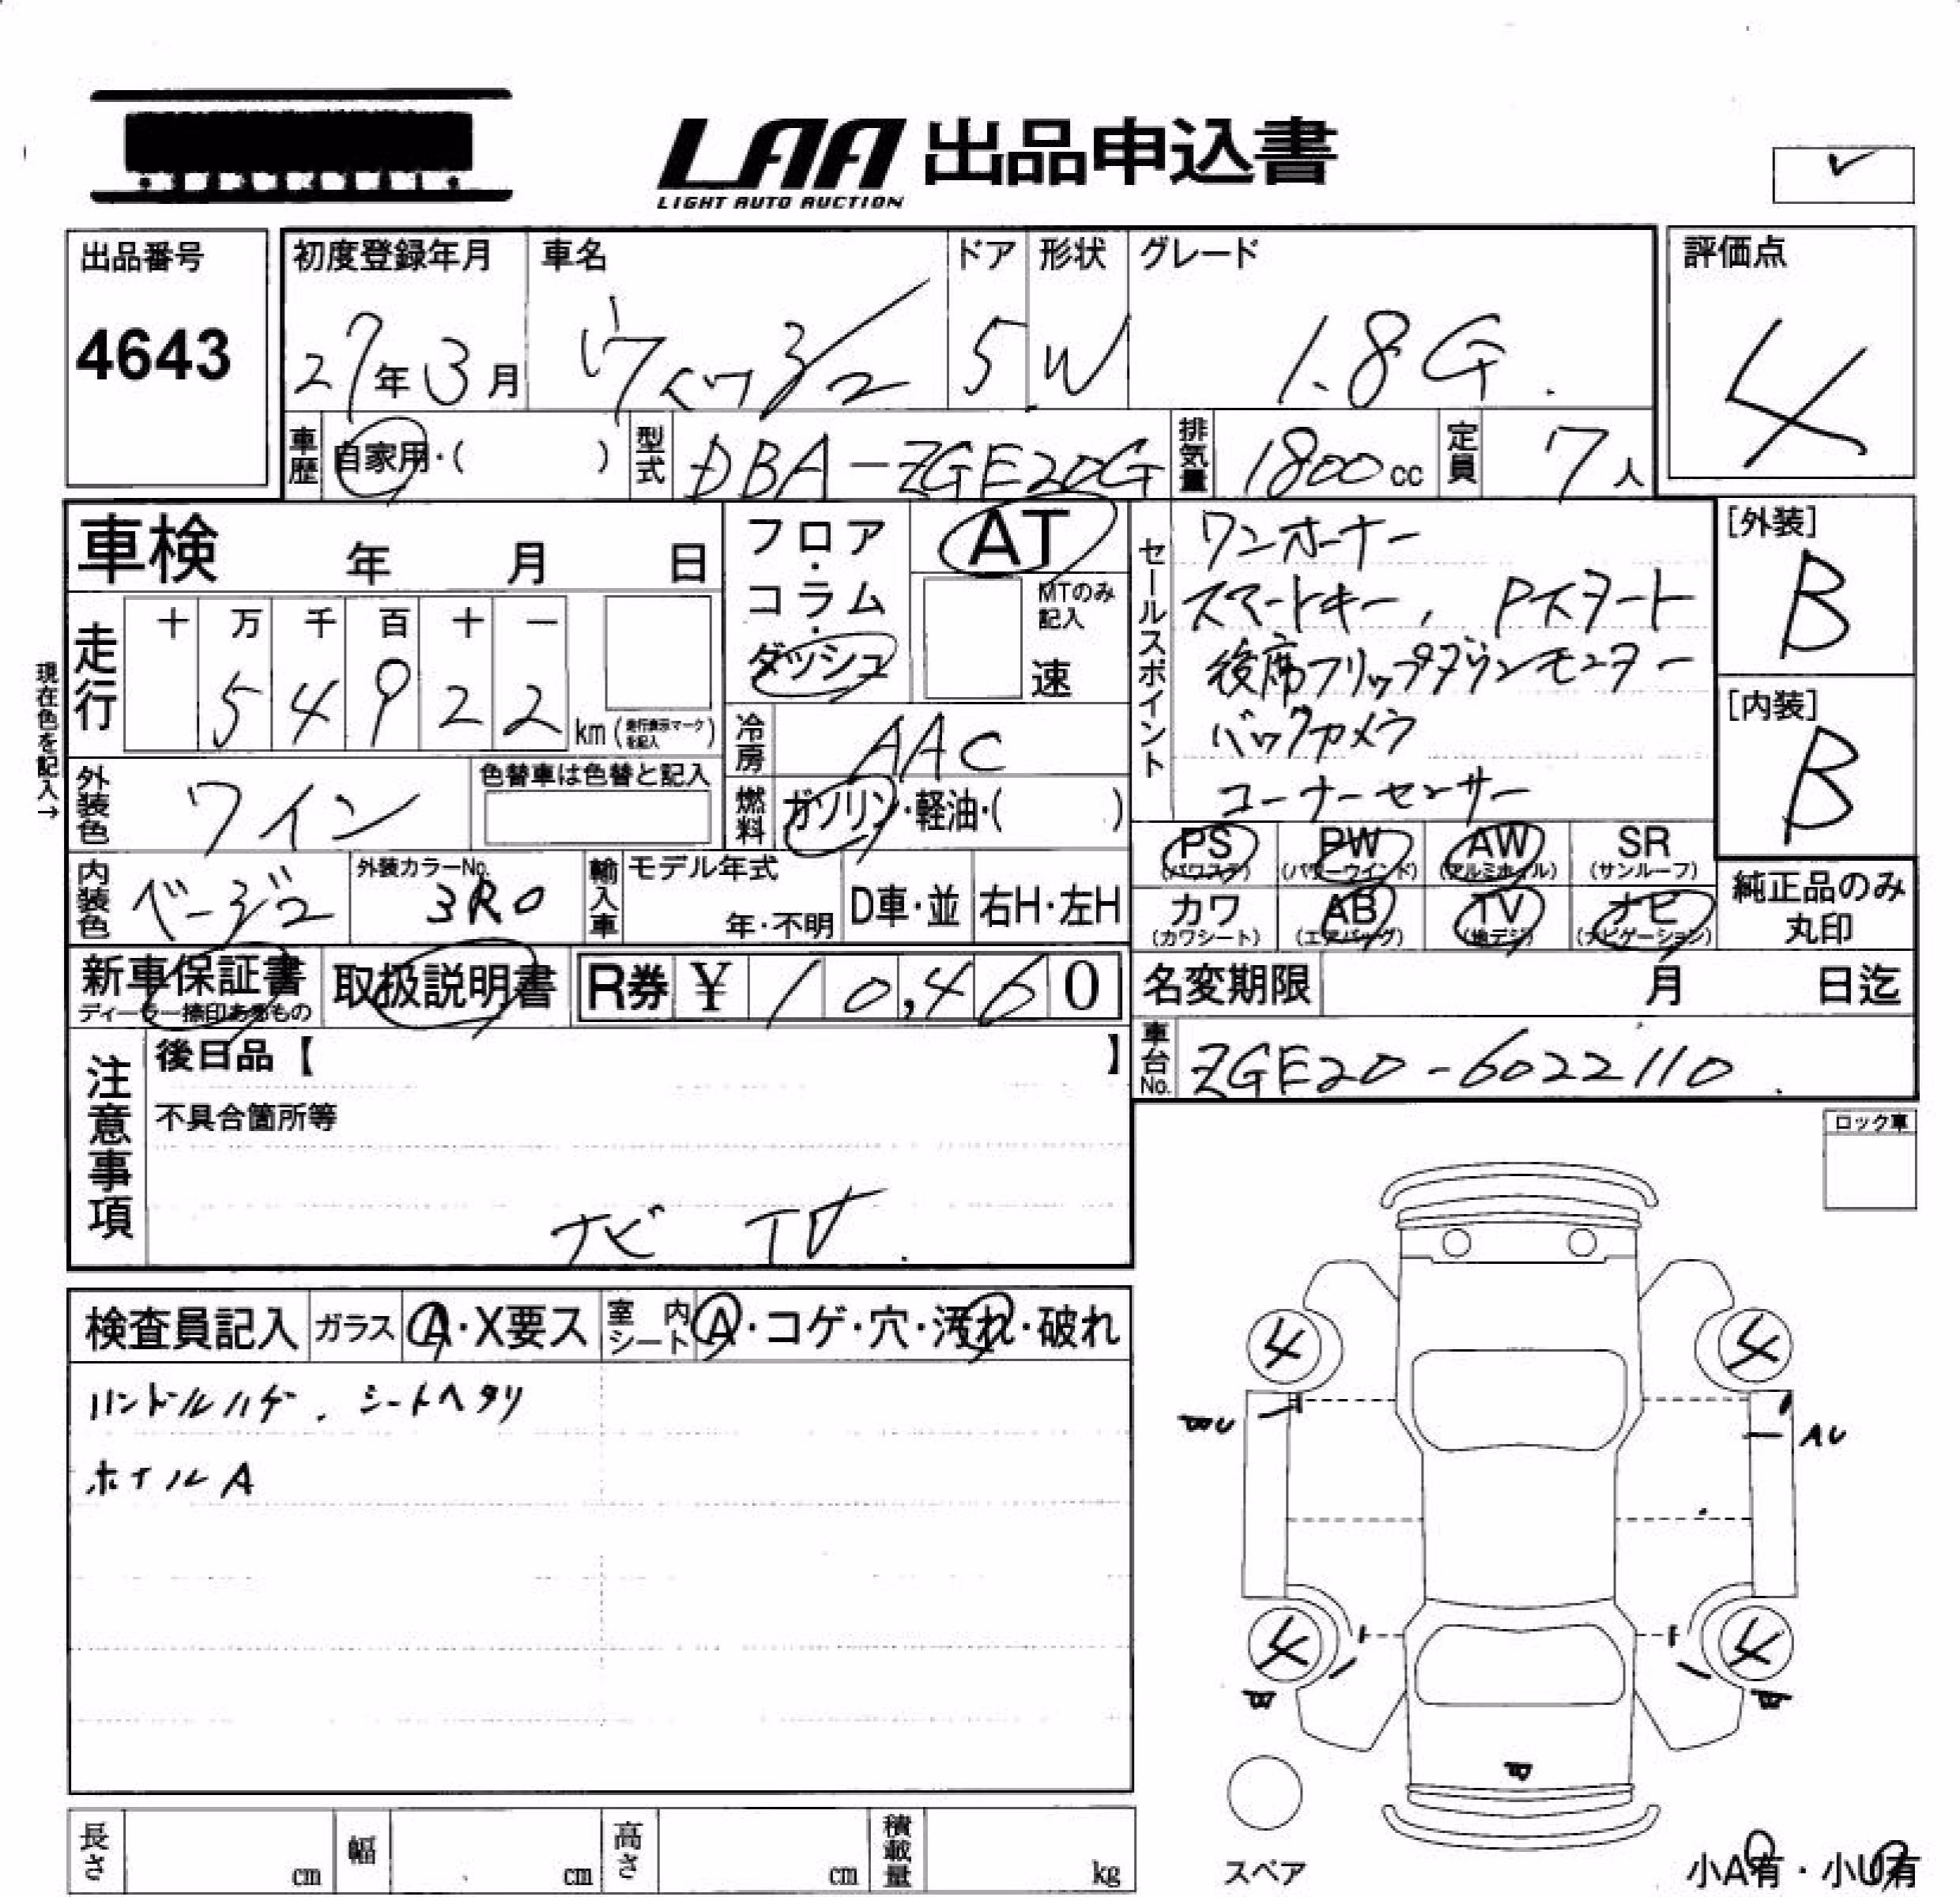 LAA 出品申込書
LIGHT AUTO AUCTION
出品番号
4643
初度登録年月
27年3月
車名
ウィッシュ
ドア
5
形状
W
グレード
1.8G
評価点
4
車歴
自家用・( )
型式
DBA-ZGE20G
排気量
1800cc
定員
7人
車検 年 月 日
フロア・コラム・ダッシュ
AT
MTのみ記入
速
現在色を記入→
走行
十 万 千 百 十 一
5 4 9 2 2 km (走行表示マークを記入)
冷房
AAC
燃料
ガソリン・軽油・( )
外装色
ワイン
色替車は色替と記入
内装色
ベージュ
外装カラーNo.
3R0
輸入車
モデル年式
年・不明
D車・並
右H・左H
セールスポイント
ワンオーナー
スマートキー, Pスタート
後席フリップダウンモニター
バックカメラ
コーナーセンサー
[外装]
B
[内装]
B
PS (パワステ)
PW (パワーウインド)
AW (アルミホイル)
SR (サンルーフ)
カワ (カワシート)
AB (エアバッグ)
TV (地デジ)
ナビ (ナビゲーション)
純正品のみ丸印
新車保証書
ディーラー捺印あるもの
取扱説明書
R券 ¥ 10,460
名変期限 月 日迄
車台No.
ZGE20-6022110
注意事項
後日品【 】
不具合箇所等
ナビ TV
ロック車
検査員記入
ガラス A・X要ス
室内シート A・コゲ・穴・汚れ・破れ
ハンドルハゲ. シートヘタリ
ホイルA
4
4
AU
4
4
スペア
小A有・小U有
長さ cm
幅 cm
高さ cm
積載量 kg